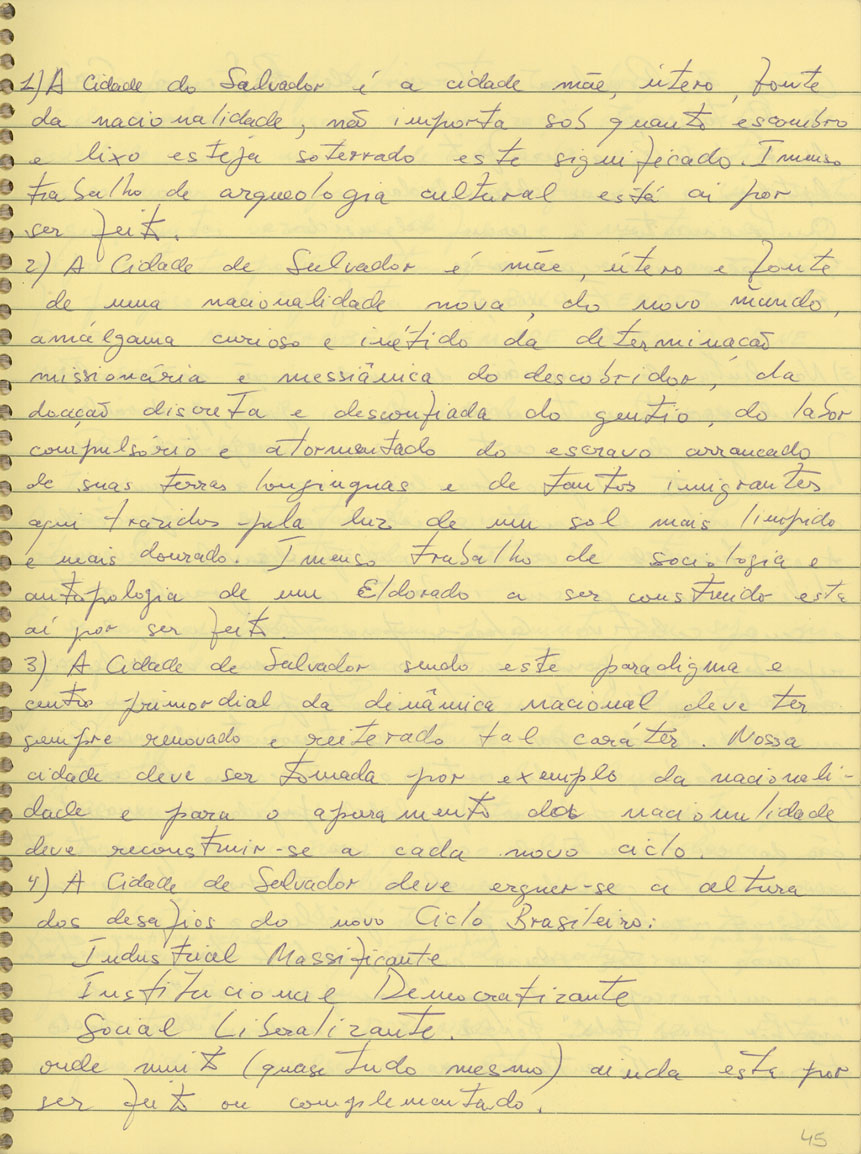 1) A Cidade do Salvador é a cidade mãe, útero, fonte
da nacionalidade, não importa sob quanto escombro
e lixo esteja soterrado este significado. Imenso
trabalho de arqueologia cultural está ai por
ser feito.
2) A Cidade de Salvador é mãe, útero e fonte
de uma nacionalidade nova, do novo mundo,
amálgama curioso e inédito da determinação
missionária e messiânica do descobridor, da
doação discreta e desconfiada do gentio, do labor
compulsório e atormentado do escravo arrancado
de suas terras longinquas e de tantos imigrantes
aqui trazidos pela luz de um sol mais limpido
e mais dourado. Imenso trabalho de sociologia e
antropologia de um Eldorado a ser construido esta
aí por ser feito.
3) A Cidade de Salvador sendo este paradigma e
centro primordial da dinâmica nacional deve ter
sempre renovado e reiterado tal caráter. Nossa
cidade deve ser tomada por exemplo da nacionali-
dade e para o aparamento da nacionalidade
deve reconstruir-se a cada novo ciclo.
4) A Cidade de Salvador deve erguer-se a altura
dos desafios do novo Ciclo Brasileiro:
Industrial Massificante
Institucional e Democratizante
Social Liberalizante.
onde muito (quase tudo mesmo) ainda esta por
ser feito ou complementado.
45